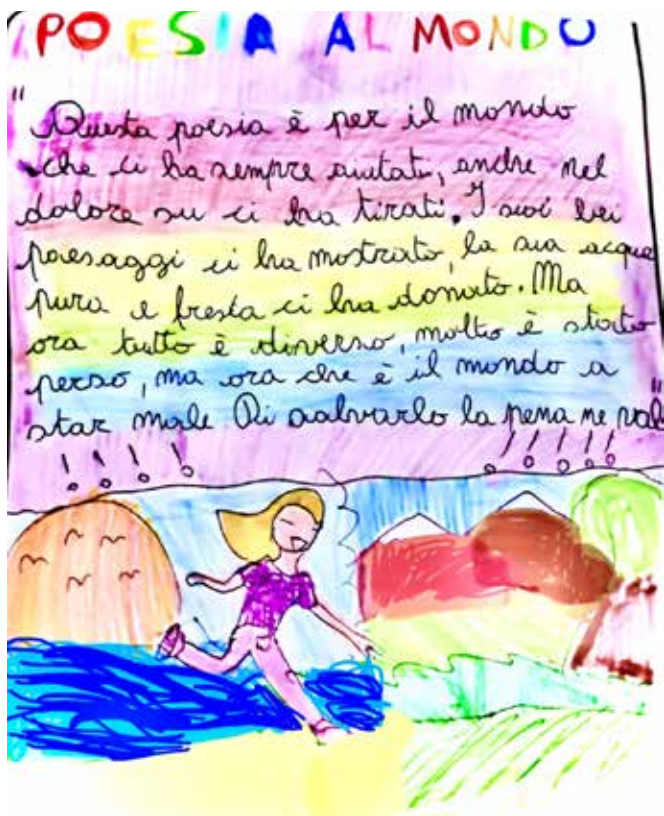 POESIA AL MONDO
"Questa poesia è per il mondo
che ci ha sempre aiutati, anche nel
dolore su ci ha tirati. I suoi bei
paesaggi ci ha mostrato, la sua acqua
pura e fresca ci ha donato. Ma
ora tutto è diverso, molto è stato
perso, ma ora che è il mondo a
star male Di salvarlo la pena ne vale"
! ! ! ! ! ! ! ! !